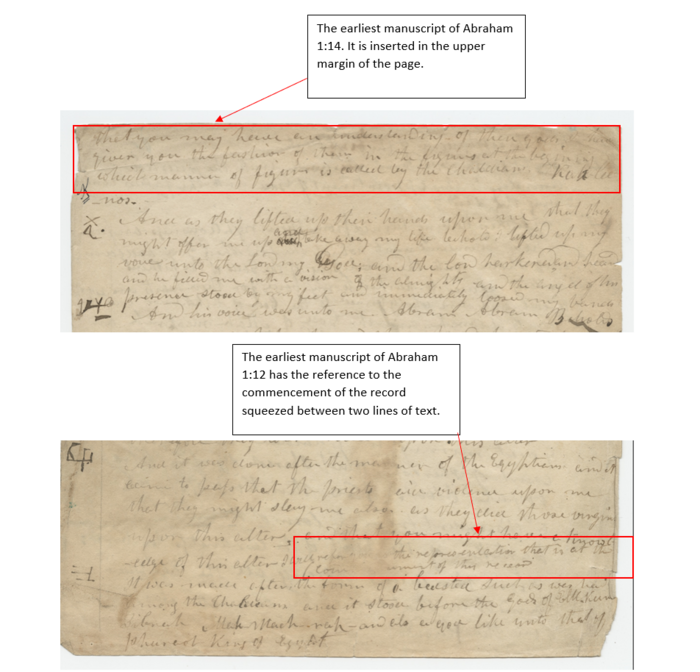 The earliest manuscript of Abraham
1:14. It is inserted in the upper
margin of the page.
that you may have an understanding of these gods I have
given you the fashion of them in the figures at the beginning
which manner of figures is called by the Chaldeans
And as they lifted up their hands upon me that they
might offer me up and take away my life behold I lifted up my
voice unto the Lord my God and the Lord
and he filled me with a vision of the almighty and the angel of his
presence stood by my feet and immediately loosed my bands
And his voice was unto me Abram Abram
The earliest manuscript of Abraham
1:12 has the reference to the
commencement of the record
squeezed between two lines of text.
And it was done after the manner of the Egyptians and it
came to pass that the priests violence upon me
that they might slay me also as they did those virgins
upon this alter and that you might have a knowl-
edge of this alter the representation that is at the
of this record
It was made after the form of a bedsted such as was had
among the Chaldeans and it stood before the gods of
and also a god like unto that of
King of Egypt